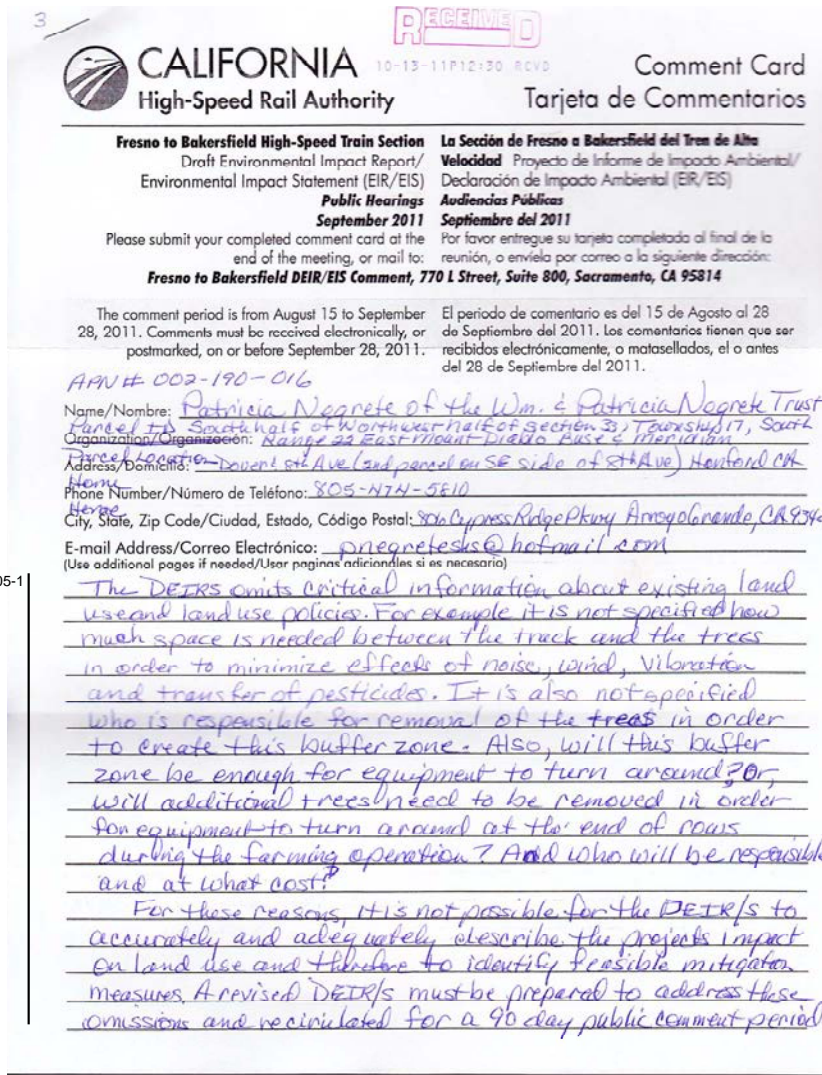 3
RECEIVED
CALIFORNIA
High-Speed Rail Authority
10-13-11P12:30 RCVD
Comment Card
Tarjeta de Commentarios
Fresno to Bakersfield High-Speed Train Section
Draft Environmental Impact Report/
Environmental Impact Statement (EIR/EIS)
Public Hearings
September 2011
Please submit your completed comment card at the
end of the meeting, or mail to:
La Sección de Fresno a Bakersfield del Tren de Alta
Velocidad Proyecto de Informe de Impacto Ambiental/
Declaración de Impacto Ambiental (EIR/EIS)
Audiencias Públicas
Septiembre del 2011
Por favor entregue su tarjeta completada al final de la
reunión, o envíela por correo a la siguiente dirección:
Fresno to Bakersfield DEIR/EIS Comment, 770 L Street, Suite 800, Sacramento, CA 95814
The comment period is from August 15 to September
28, 2011. Comments must be received electronically, or
postmarked, on or before September 28, 2011.
El periodo de comentario es del 15 de Agosto al 28
de Septiembre del 2011. Los comentarios tienen que ser
recibidos electrónicamente, o matasellados, el o antes
del 28 de Septiembre del 2011.
APN # 002-190-016
Name/Nombre: Patricia Negrete of the Wm. & Patricia Negrete Trust
Parcel is South half of Northwest half of section 33, Township 17, South
Organization/Organización: Range 22 East Mount Diablo Base & Meridian
Parcel Location
Address/Domicilio: Dover & 8th Ave (2nd parcel on SE side of 8th Ave) Hanford CA
Home
Phone Number/Número de Teléfono: 805-474-5810
Home
City, State, Zip Code/Ciudad, Estado, Código Postal: 806 Cypress Ridge Pkwy Arroyo Grande, CA 934
E-mail Address/Correo Electrónico: pnegretesks@hotmail.com
(Use additional pages if needed/Usar paginas adicionales si es necesario)
05-1
The DEIRS omits critical information about existing land
use and land use policies. For example it is not specified how
much space is needed between the track and the trees
in order to minimize effects of noise, wind, vibration
and transfer of pesticides. It is also not specified
who is responsible for removal of the trees in order
to create this buffer zone. Also, will this buffer
zone be enough for equipment to turn around? Or,
will additional trees need to be removed in order
for equipment to turn around at the end of rows
during the farming operation? And who will be responsible
and at what cost?
For these reasons, it is not possible for the DEIR/S to
accurately and adequately describe the projects impact
on land use and therefore to identify feasible mitigation
measures. A revised DEIR/S must be prepared to address these
omissions and recirulated for a 90 day public comment period